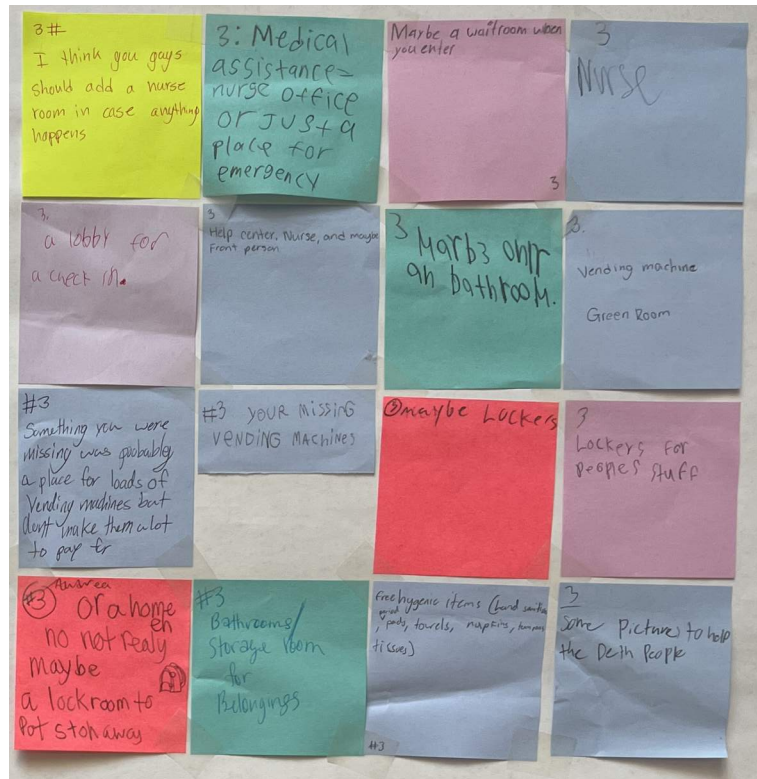 3#
I think you gays
should add a nurse
room in case anything
happens
3: Medical
assistance=
nurse office
or Just a
place for
emergency
Maybe a waitroom when
you enter
3
3
Nurse
3.
a lobby for
a check in.
3
Help center, Nurse, and maybe
Front person
3
an bathroom.
3.
Vending machine
Green Room
#3
Something you were
missing was probably
a place for loads of
Vending machines but
dont make them alot
to pay for
#3 YOUR MISSING
VENDING MACHINES
3 maybe Lockers
3
Lockers For
Peoples Stuff
#3 Andrea
or a home
no not realy
maybe
a lockroom to
Pot away
#3
Bathrooms/
Storage room
for
Belongings
Free hygenic items (hand
, pads, towels, napkins,
tissues)
#3
3
Some Pictures to help
the Deth People